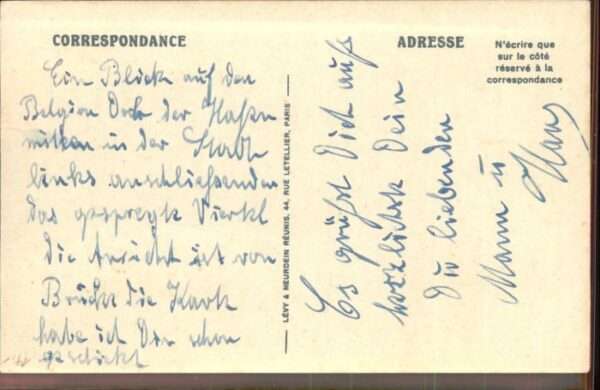 CORRESPONDANCE
Ein Blick auf den
Belgien Dock der Hafen
mitten in der Stadt
links anschließenden
das gesprengte Viertel
die Ansicht ist von
Brücke die Karte
habe ich Dir schon
geschickt
LÉVY & NEURDEIN RÉUNIS, 44, RUE LETELLIER, PARIS
ADRESSE
N'écrire que
sur le côté
réservé à la
correspondance
Es grüßt Dich aufs
herzlichste Dein
Du liebenden
Mann u
Hans